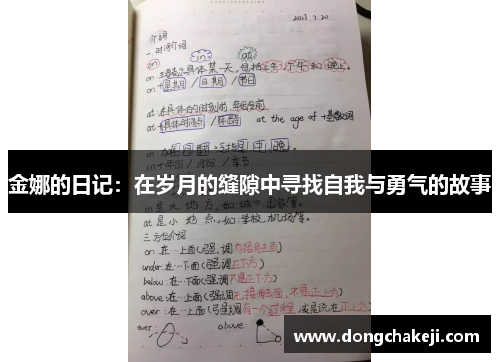 2017.3.20
介词
一.时间介词
on in at
on:主要表示具体某一天,包括上午,下午和晚上。
on+星期/日期/节日
at:在具体的时刻前,年龄前
at+具体时刻/年龄 at the age of+基数词
in+年份/月份/季节
金娜的日记：在岁月的缝隙中寻找自我与勇气的故事
in是大地方,如:城市,国家等。
at是小地点,如:学校,机场等。
三.方位介词
on:在…上面(强调有接触面)
under:在…下面(强调正下方)
below:在…下面(强调不是正下方)
above:在…上面(强调无接触面,不是正上方)
over:在…上面(强调有一个过程,或是说在正上方)
over: above
www.dongchakeji.com